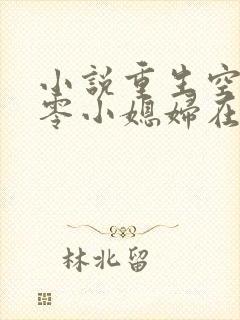 小說重生空
零小媳婦在
林北留